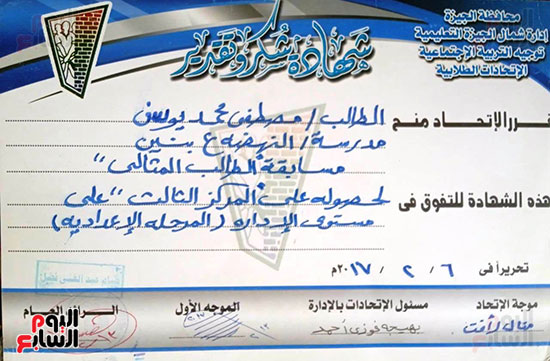 محافظة الجيزة
إدارة شمال الجيزة التعليمية
توجيه التربية الإجتماعية
الإتحادات الطلابية
شهادة شكر وتقدير
قرر الإتحاد منح الطالب / مصطفى محمد يوسف
مدرسة / النهضة ع بنين
هذه الشهادة للتفوق فى مسابقة "الطالب المثالى"
لحصوله على "المركز الثالث" على
مستوى الإدارة (المرحلة الإعدادية)
تحريراً فى ٦ / ٢ / ٢٠١٧م
موجة الإتحاد
مسئول الإتحادات بالإدارة
الموجه الأول
الرائد العام
منال رأفت
بهيجة فوزى أحمد
اليوم السابع